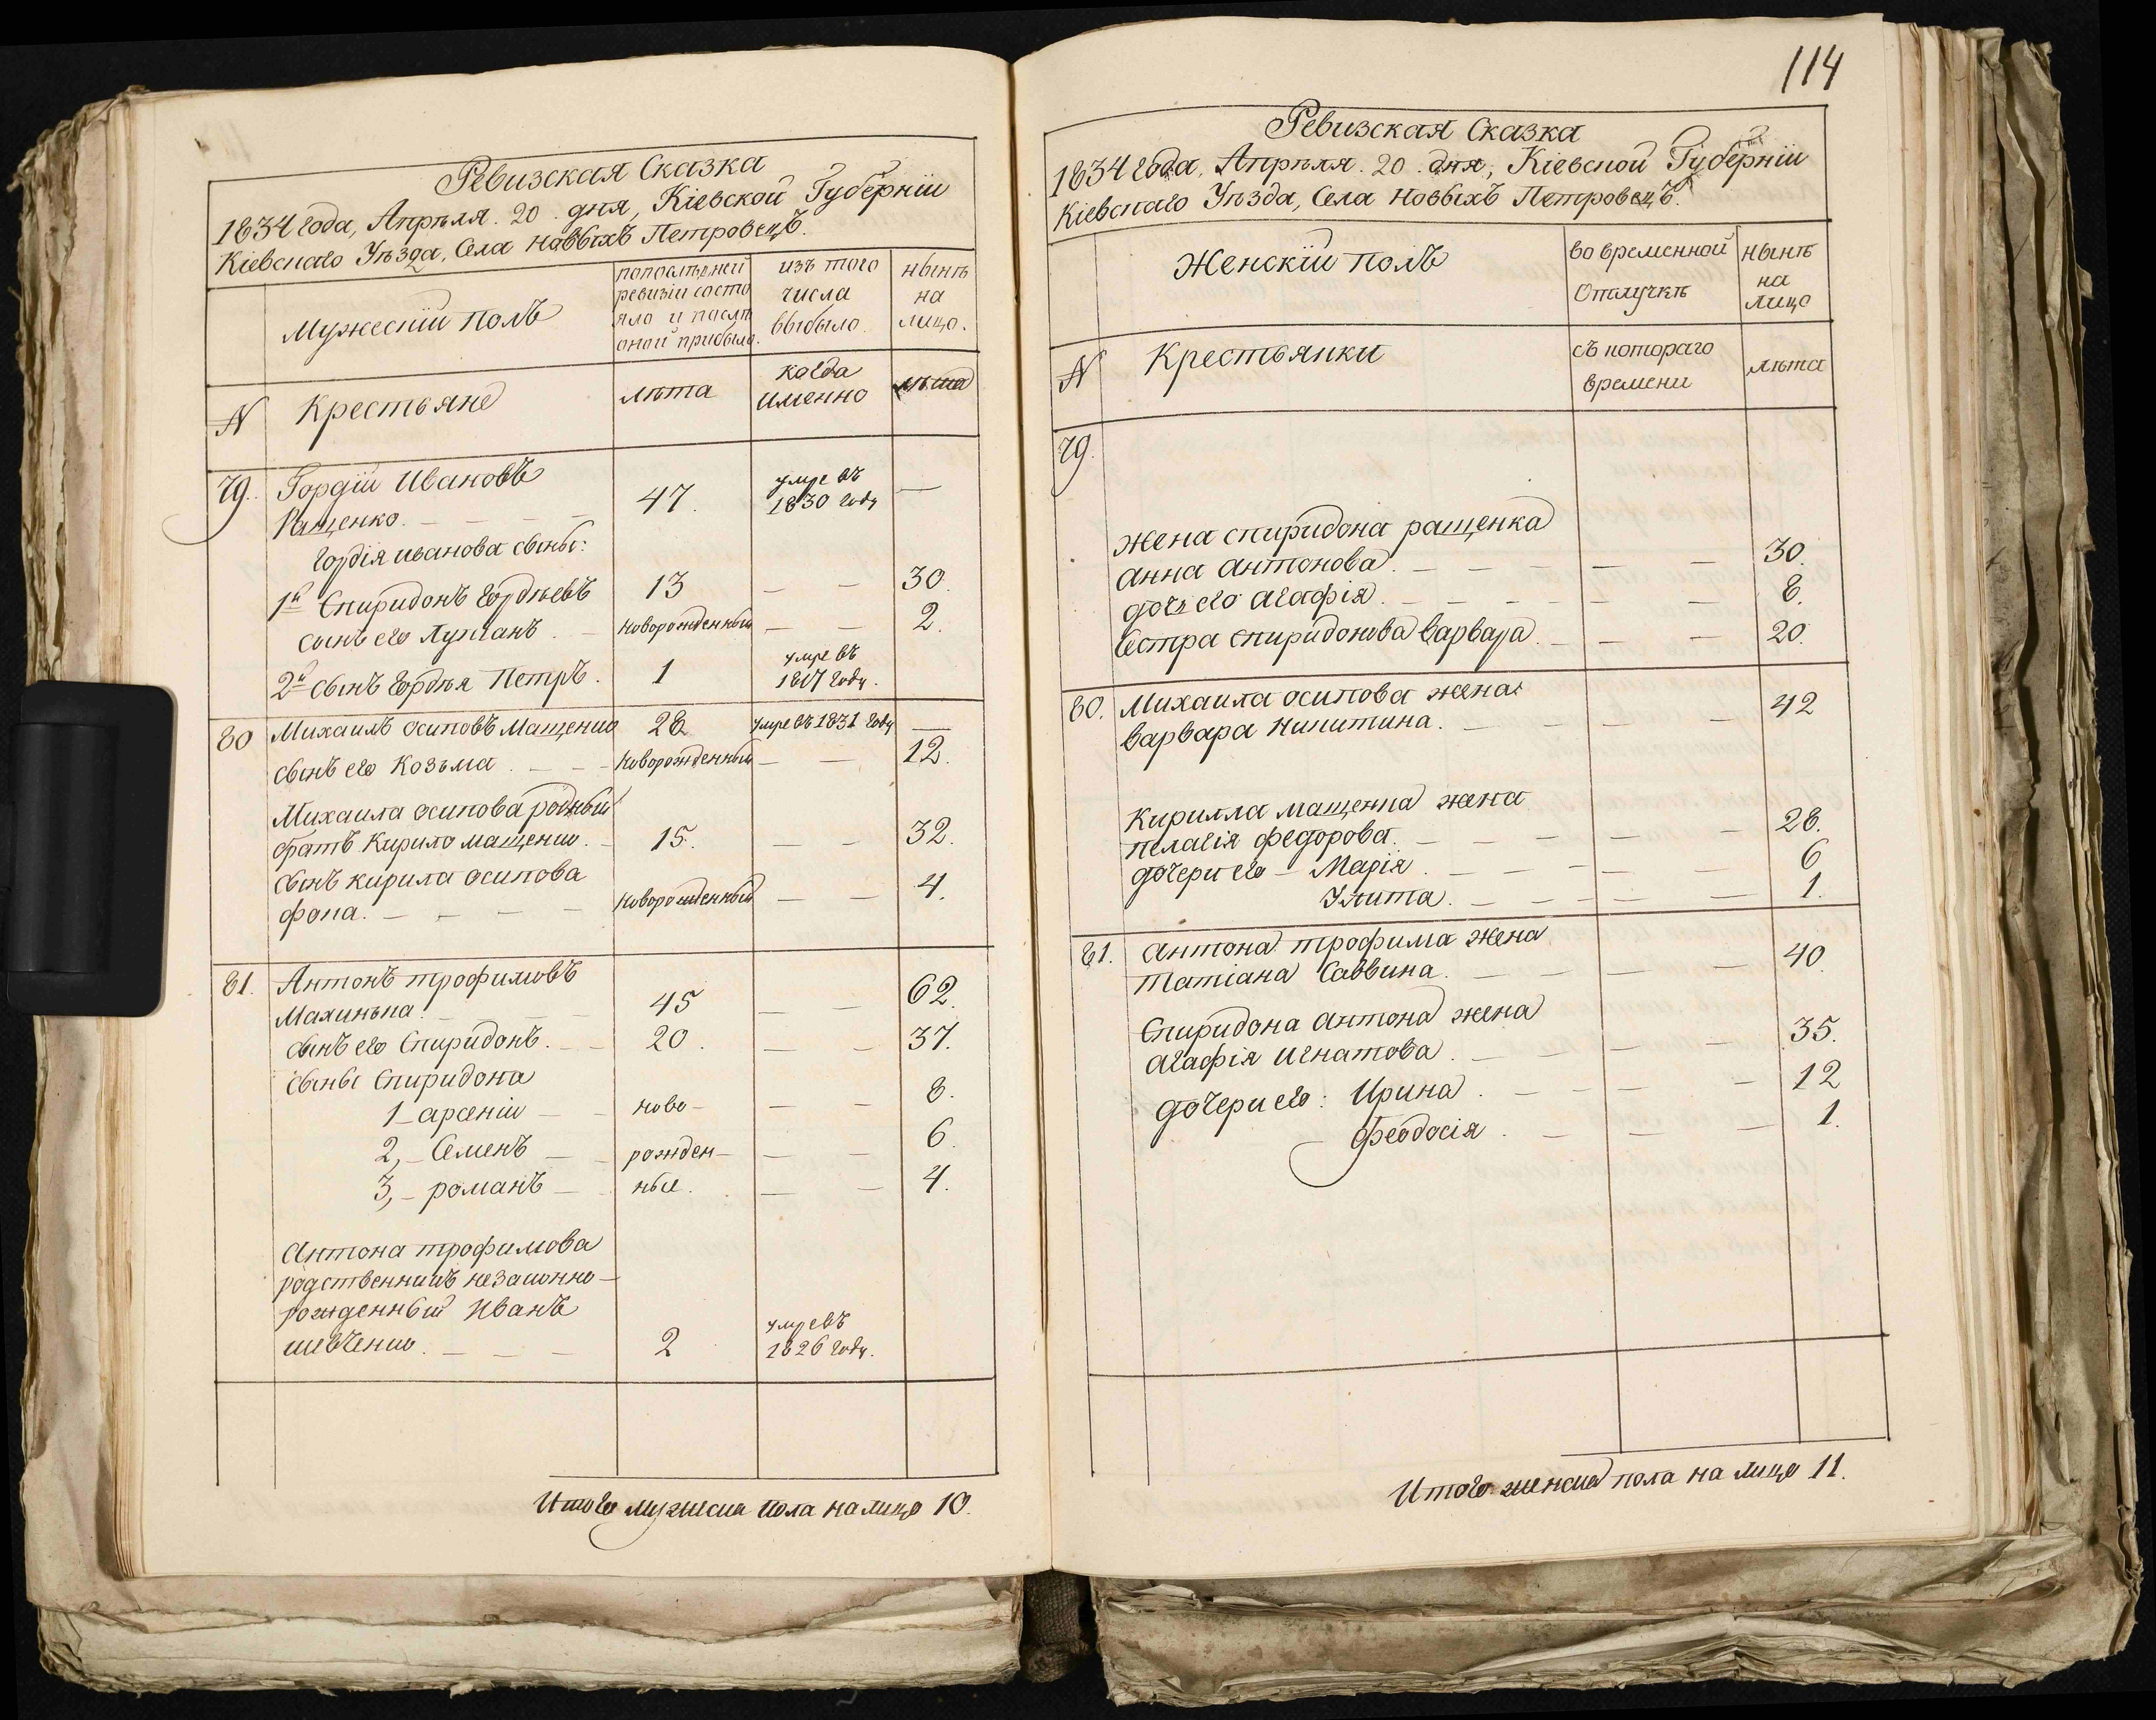 Ревизская Сказка
1834 года, Апрѣля. 20. дня, Кіевской Губерніи
Кіевскаго Уѣзда, Села Новыхъ Петровецъ.
Мужескій полъ
по послѣдней
ревизіи состо
яло и послѣ
оной прибыло.
изъ того
числа
выбыло.
нынѣ
на
лицо.
N
Крестьяне
лѣта
когда
именно
лѣта
79. Гордій Ивановъ
Ращенко. 47. умре въ 1830 году —
Гордія иванова сыны:
1й Спиридонъ Гордѣевъ 13 — — 30.
сынъ его Лукіанъ. новорожденный — — 2.
2й сынъ Гордѣя Петръ. 1 умре въ 1817 году.
80 Михаилъ осиповъ Мащенко 28 умре въ 1831 году —
сынъ его Козьма. новорожденный — — 12.
Михаила осипова родный
братъ Кирило мащенко. 15. — — 32.
сынъ кирила осипова
фока. новорожденный — — 4.
81. Антонъ трофимовъ
Махинька. 45 — — 62.
сынъ его Спиридонъ. 20. — — 37.
сыны Спиридона
1_ арсеній — ново- — — 8.
2,- Семенъ — рожден- — — 6.
3,- романъ — ные. — — 4.
Антона трофимова
родственникъ незаконно-
рожденный Иванъ
шевченко. 2 умре въ 1826 году.
Итого мужеска пола на лицо 10.
114
Ревизская Сказка
1834 года, Апрѣля. 20. дня, Кіевской Губерніи
Кіевскаго Уѣзда, Села Новыхъ Петровецъ.
Женскій полъ
во временной
Отлучкѣ
нынѣ
на
лицо
N
Крестьянки
съ котораго
времени
лѣта
79.
жена спиридона ращенка
анна антонова. — — 30.
дочь его агафія. — — 8.
Сестра спиридонова варвара. — — 20.
80. Михаила осипова жена
варвара никитина. — — 42
Кирилла мащенка жена
пелагія федорова. — — 28.
дочери его — Марія. — — 6
Улита. — — 1.
81. антона трофима жена
татіана Саввина. — — 40.
Спиридона антона жена
агафія игнатова. — — 35.
дочери его: Ирина. — — 12
феодосія. — — 1.
Итого женска пола на лицо 11.